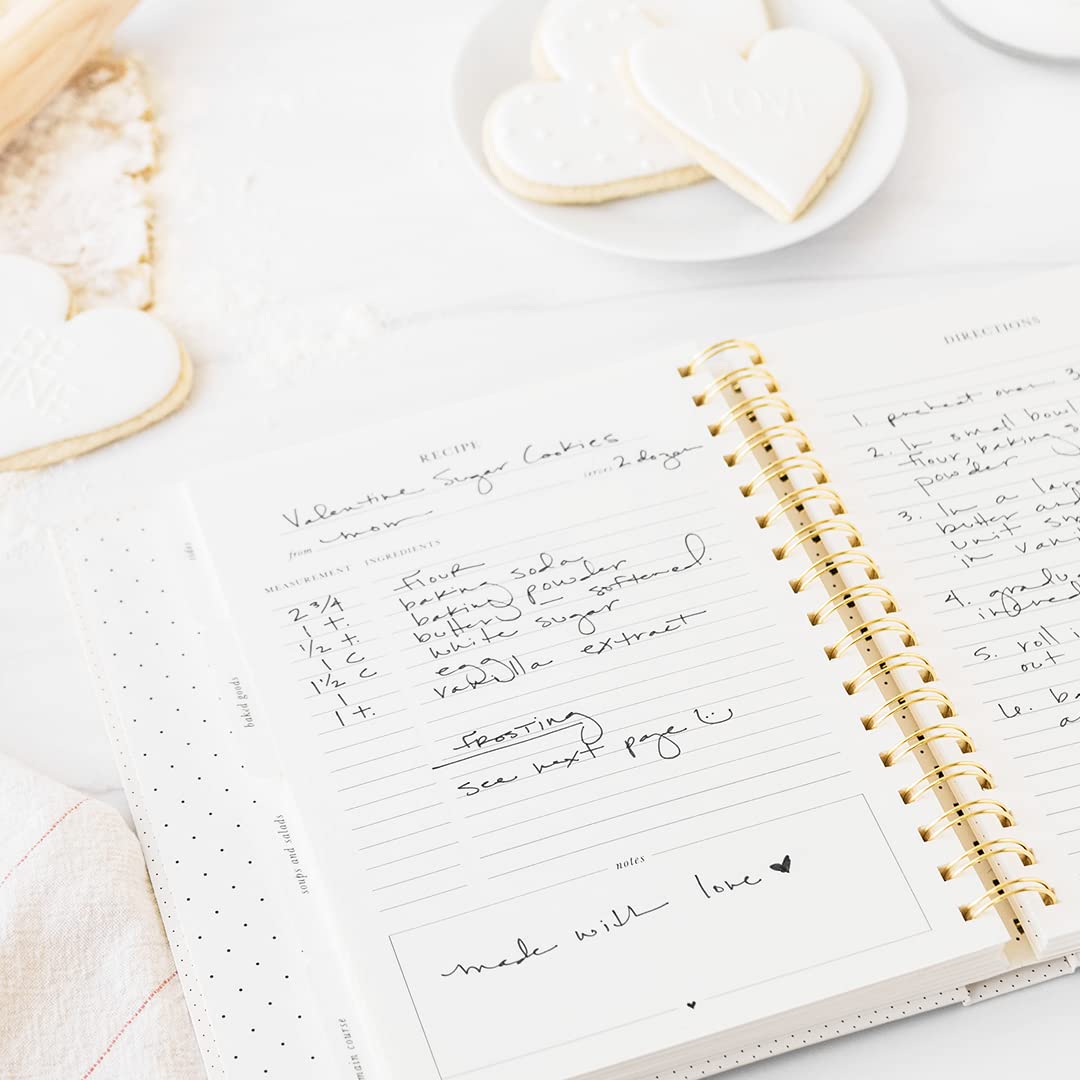 LOVE
RECIPE
Valentine Sugar Cookies
from mom
serves 2 dozen
MEASUREMENT INGREDIENTS
2 3/4 Flour
1 t. baking soda
1/2 t. baking powder
1 c butter, softened.
1 1/2 c white sugar
1 egg
1 t. vanilla extract
FROSTING
see next page
notes
made with love ♥
sides
baked goods
soups and salads
main course
DIRECTIONS
1. preheat oven 3
2. In small bowl
flour, baking s
powder
3. In a larg
butter and
until sm
in vani
4. gradu
ingredi
5. roll i
out
6. ba
a